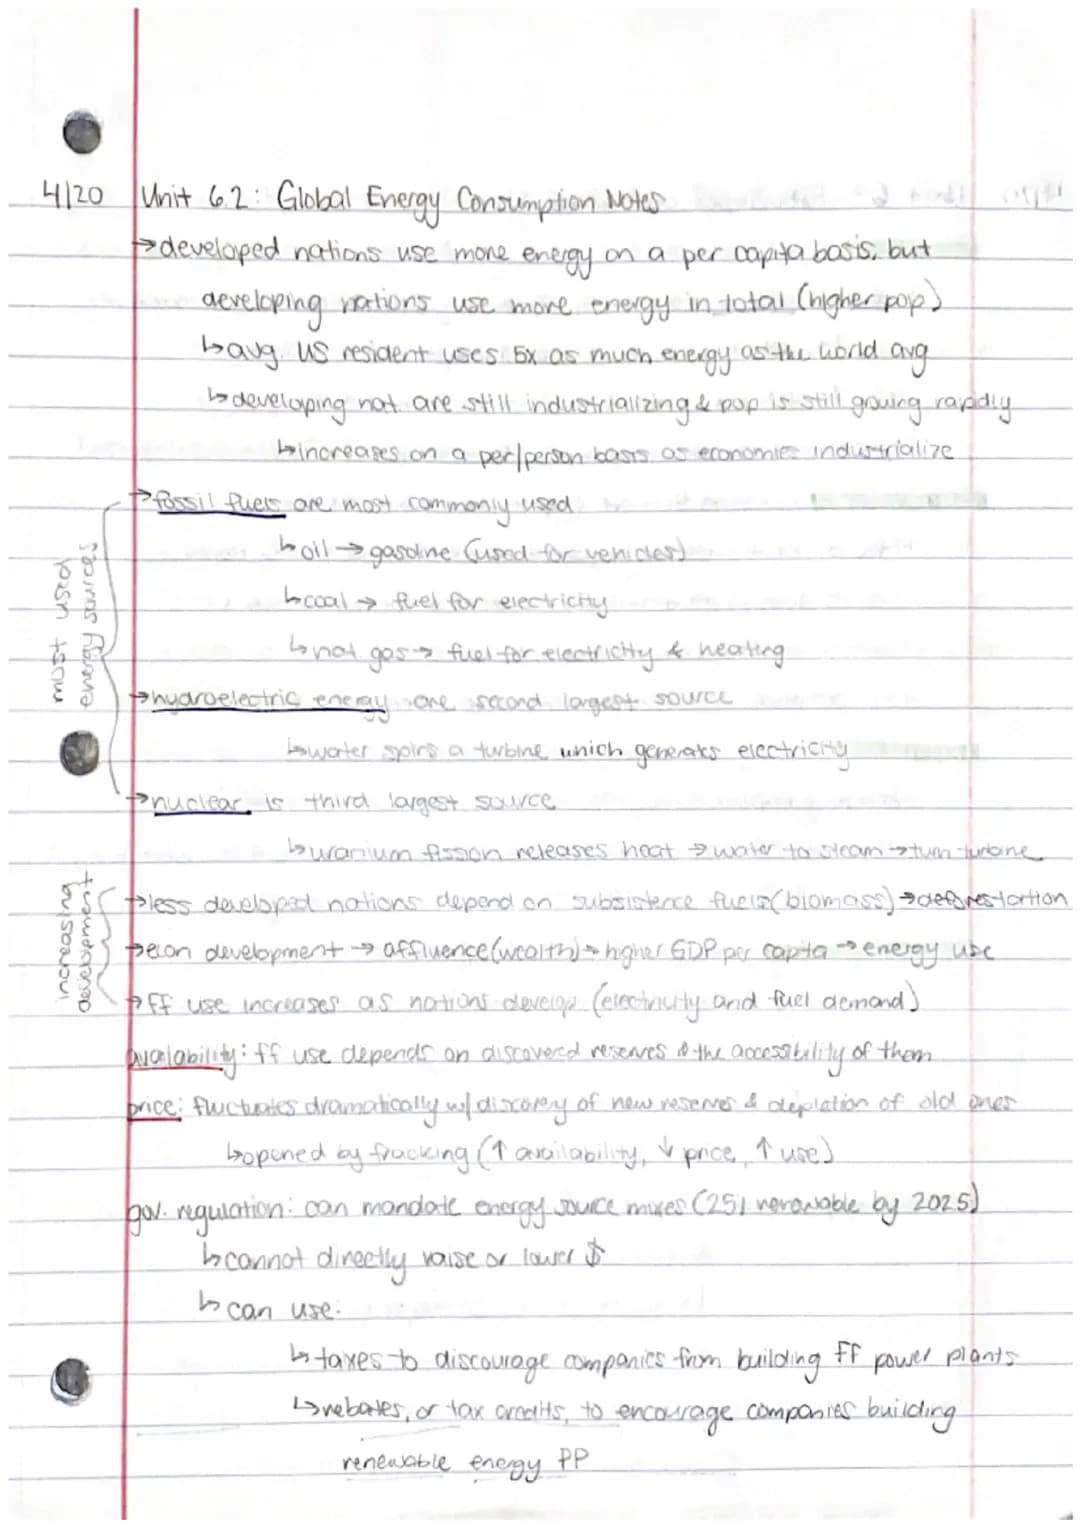 4/20 Unit 6.2: Global Energy Consumption Notes
→developed nations use more energy on a per capita basis, but
developing nations use more energy in total (higher pop)
↳avg. US resident uses 5x as much energy as the world avg
↳developing nat. are still industrializing & pop is still growing rapidly
↳increases on a per/person basis as economies industrialize
→fossil fuels are most commonly used
↳oil → gasoline (used for vehicles)
↳coal → fuel for electricity
↳nat gas → fuel for electricity & heating
most used
energy sources
→hydroelectric energy are second largest source
↳water spins a turbine which generates electricity
→nuclear is third largest source
↳uranium fission releases heat → water to steam → turn turbine
increasing
development
→less developed nations depend on subsistence fuels (biomass) → deforestartion
→econ development → affluence (wealth) → higher GDP per capita → energy use
→ff use increases as nations develop (electricity and fuel demand)
availability: ff use depends on discovered reserves & the accessibility of them
price: fluctuates dramatically w/ discovery of new reserves & depletion of old ones
↳opened by fracking (↑ availability, ↓ price, ↑ use)
gov. regulation: can mandate energy source mixes (25% renewable by 2025)
↳cannot directly raise or lower $
↳can use:
↳taxes to discourage companies from building FF power plants
↳rebates, or tax credits, to encourage companies building
renewable energy PP